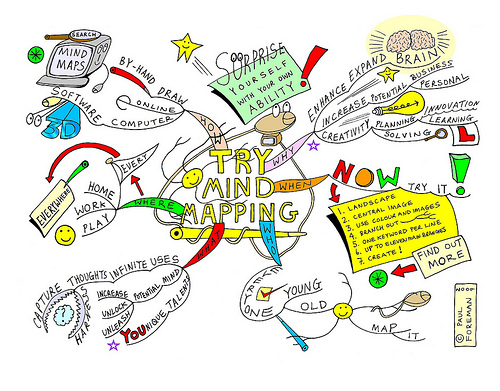 SEARCH
MIND
MAPS
SOFTWARE
3D
BY-HAND
DRAW
ONLINE
COMPUTER
HOW
SURPRISE
YOURSELF
WITH YOUR OWN
ABILITY!
ENHANCE EXPAND BRAIN
INCREASE POTENTIAL BUSINESS
PERSONAL
CREATIVITY
PLANNING
INNOVATION
LEARNING
SOLVING
L
WHY
TRY
MIND
MAPPING
EVERY
EVERYWHERE
HOME
WORK
PLAY
WHERE
WHEN
NOW
TRY IT
!
1. LANDSCAPE
2. CENTRAL IMAGE
3. USE COLOUR AND IMAGES
4. BRANCH OUT
5. ONE KEYWORD PER LINE
6. UP TO ELEVEN MAIN BRANCHES
7. CREATE!
FIND OUT
MORE
WHAT
THOUGHTS INFINITE USES
CAPTURE
HARNESS
INCREASE
UNLOCK
UNLEASH
POTENTIAL MIND
YOUNIQUE TALENT
WHO
ONE
YOUNG
OLD
MAP
IT
© PAUL
FOREMAN